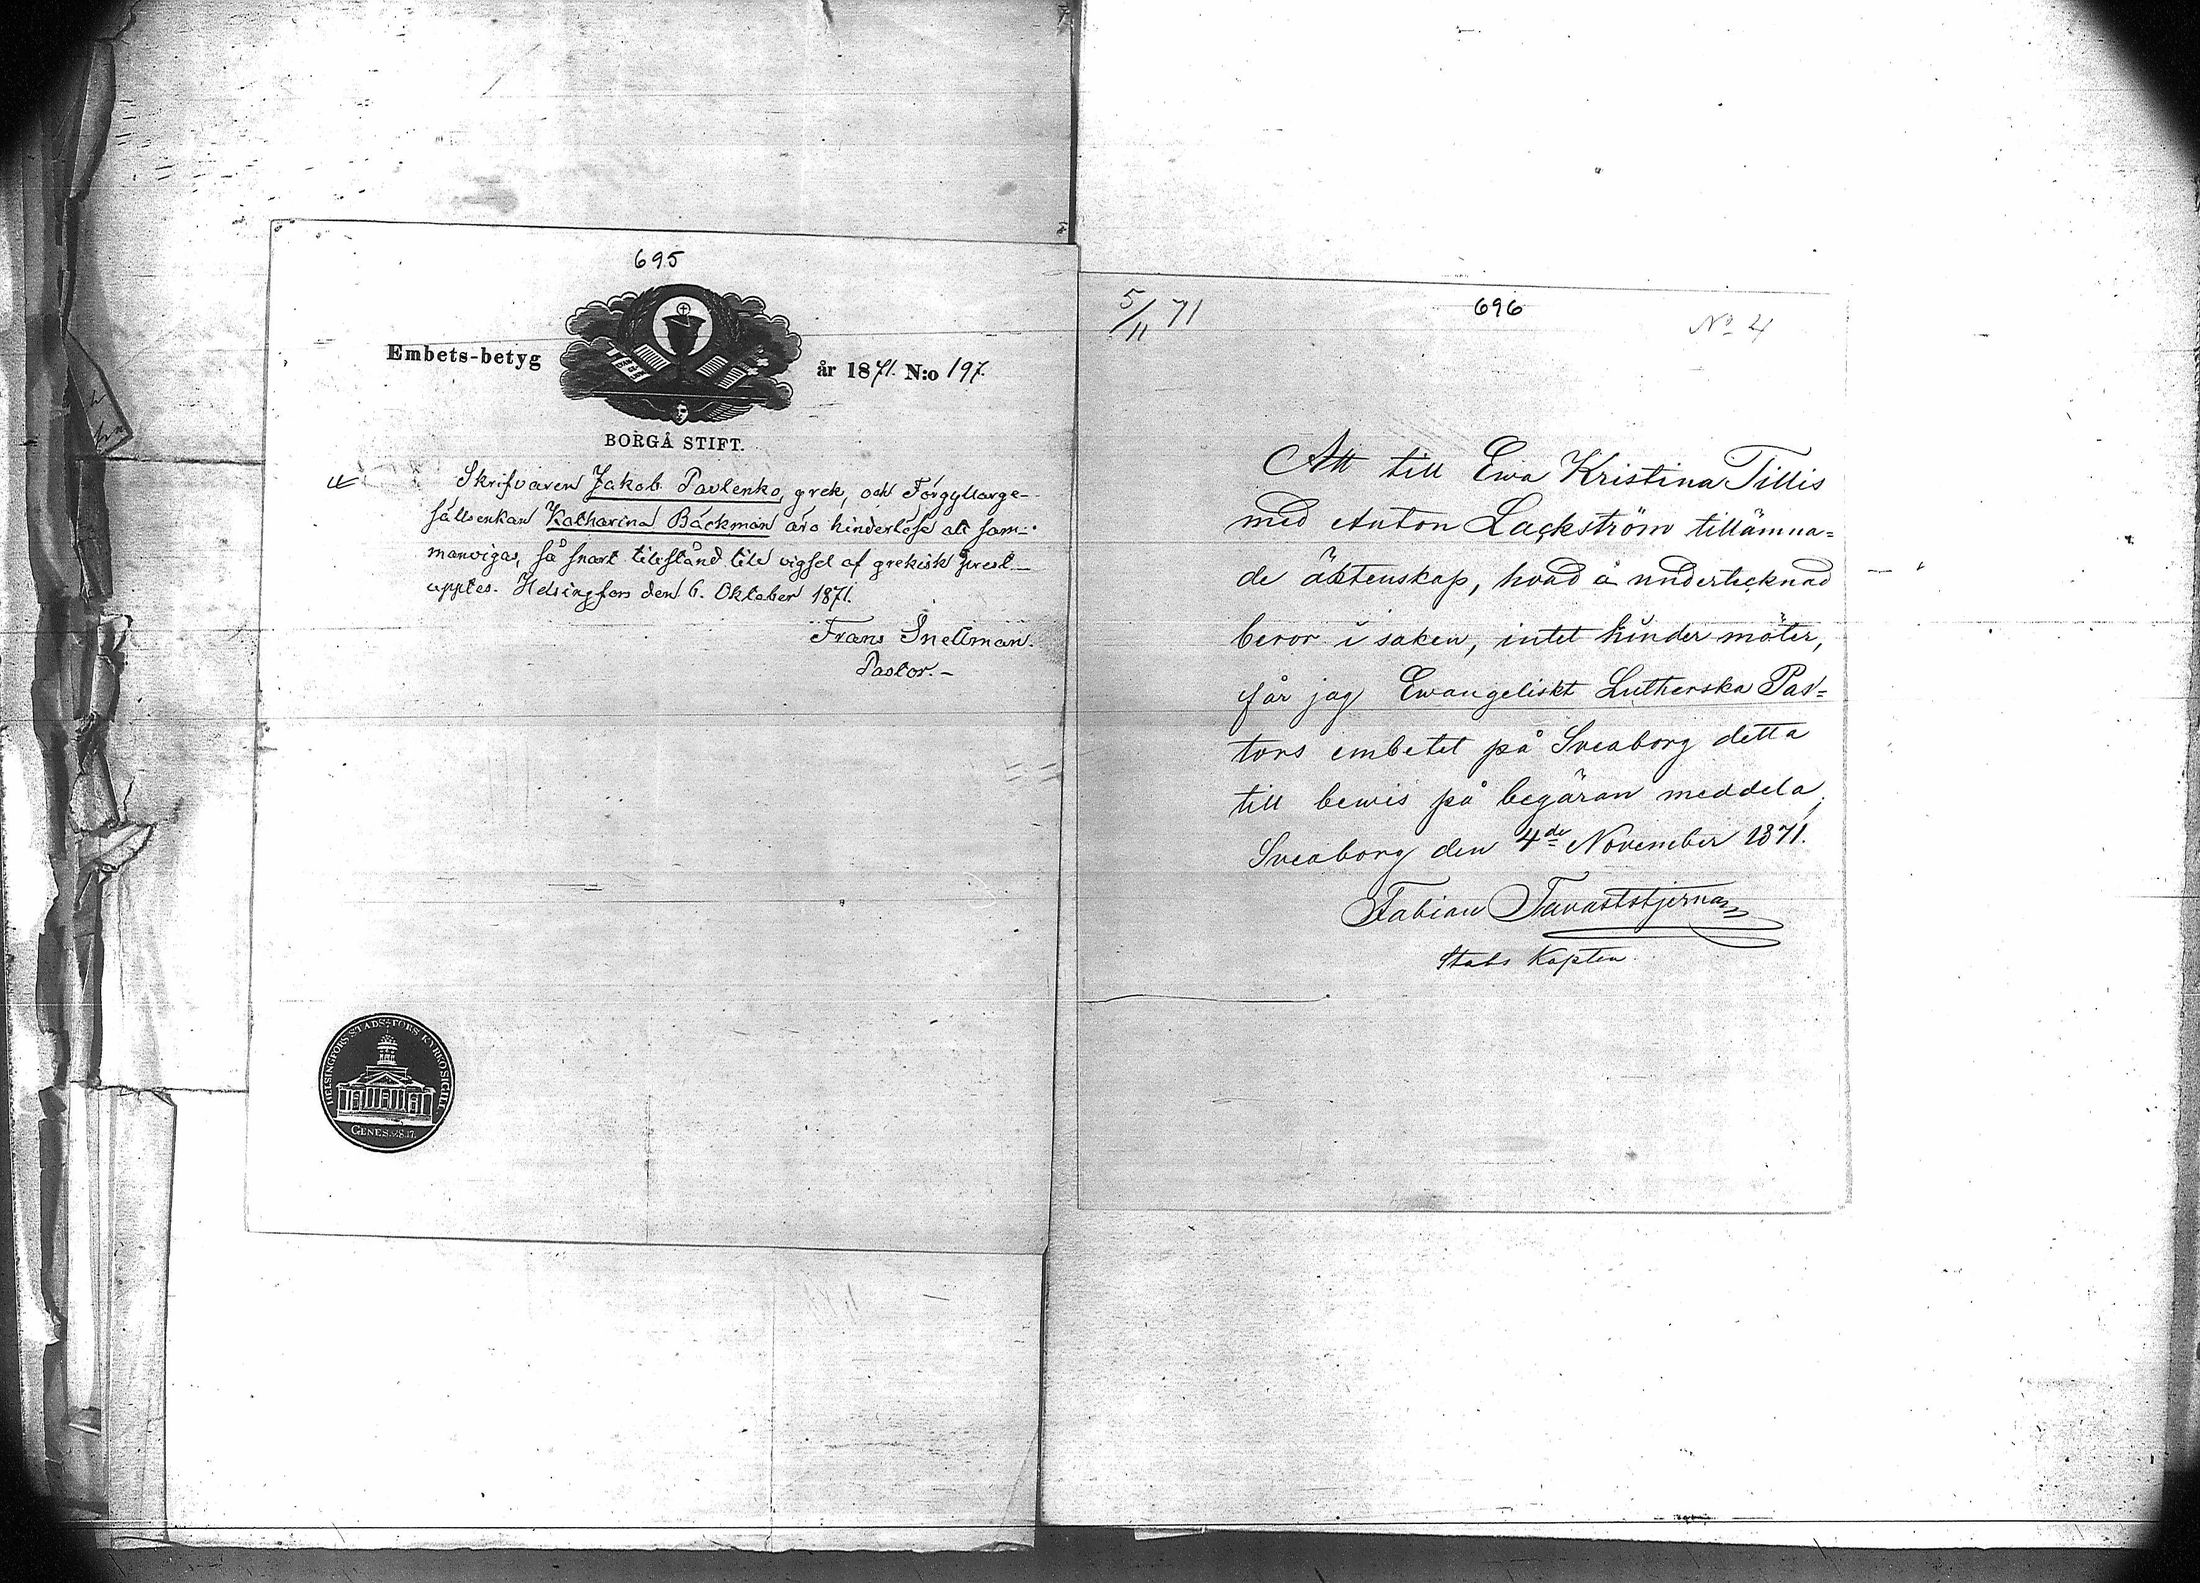 695
Embets-betyg
år 1871. N:o 197.
BORGÅ STIFT.
Skrifvaren Jakob Pavlenko, grek, och Förgyllarge-
sällsenkan Katharina Bäckman äro hinderlöse att sam-
manvigas, så snart tillstånd till vigsel af grekisk prest
upptes. Helsingfors den 6. Oktober 1871.
Frans Snellman.
Pastor.
HELSINGFORS STADS-FÖRS. KYRKOSIGILL.
GENES. 28.17.
5/11 71
696
No 4
Att till Ewa Kristina Tillis
med Anton Lackström tillämna=
de äktenskap, hvad å undertecknad
beror i saken, intet hinder möter,
får jag Ewangeliskt Lutherska Pas=
tors embetet på Sveaborg detta
till bewis på begäran meddela,
Sveaborg den 4de November 1871.
Fabian Tavaststjerna
Stabs Kapten